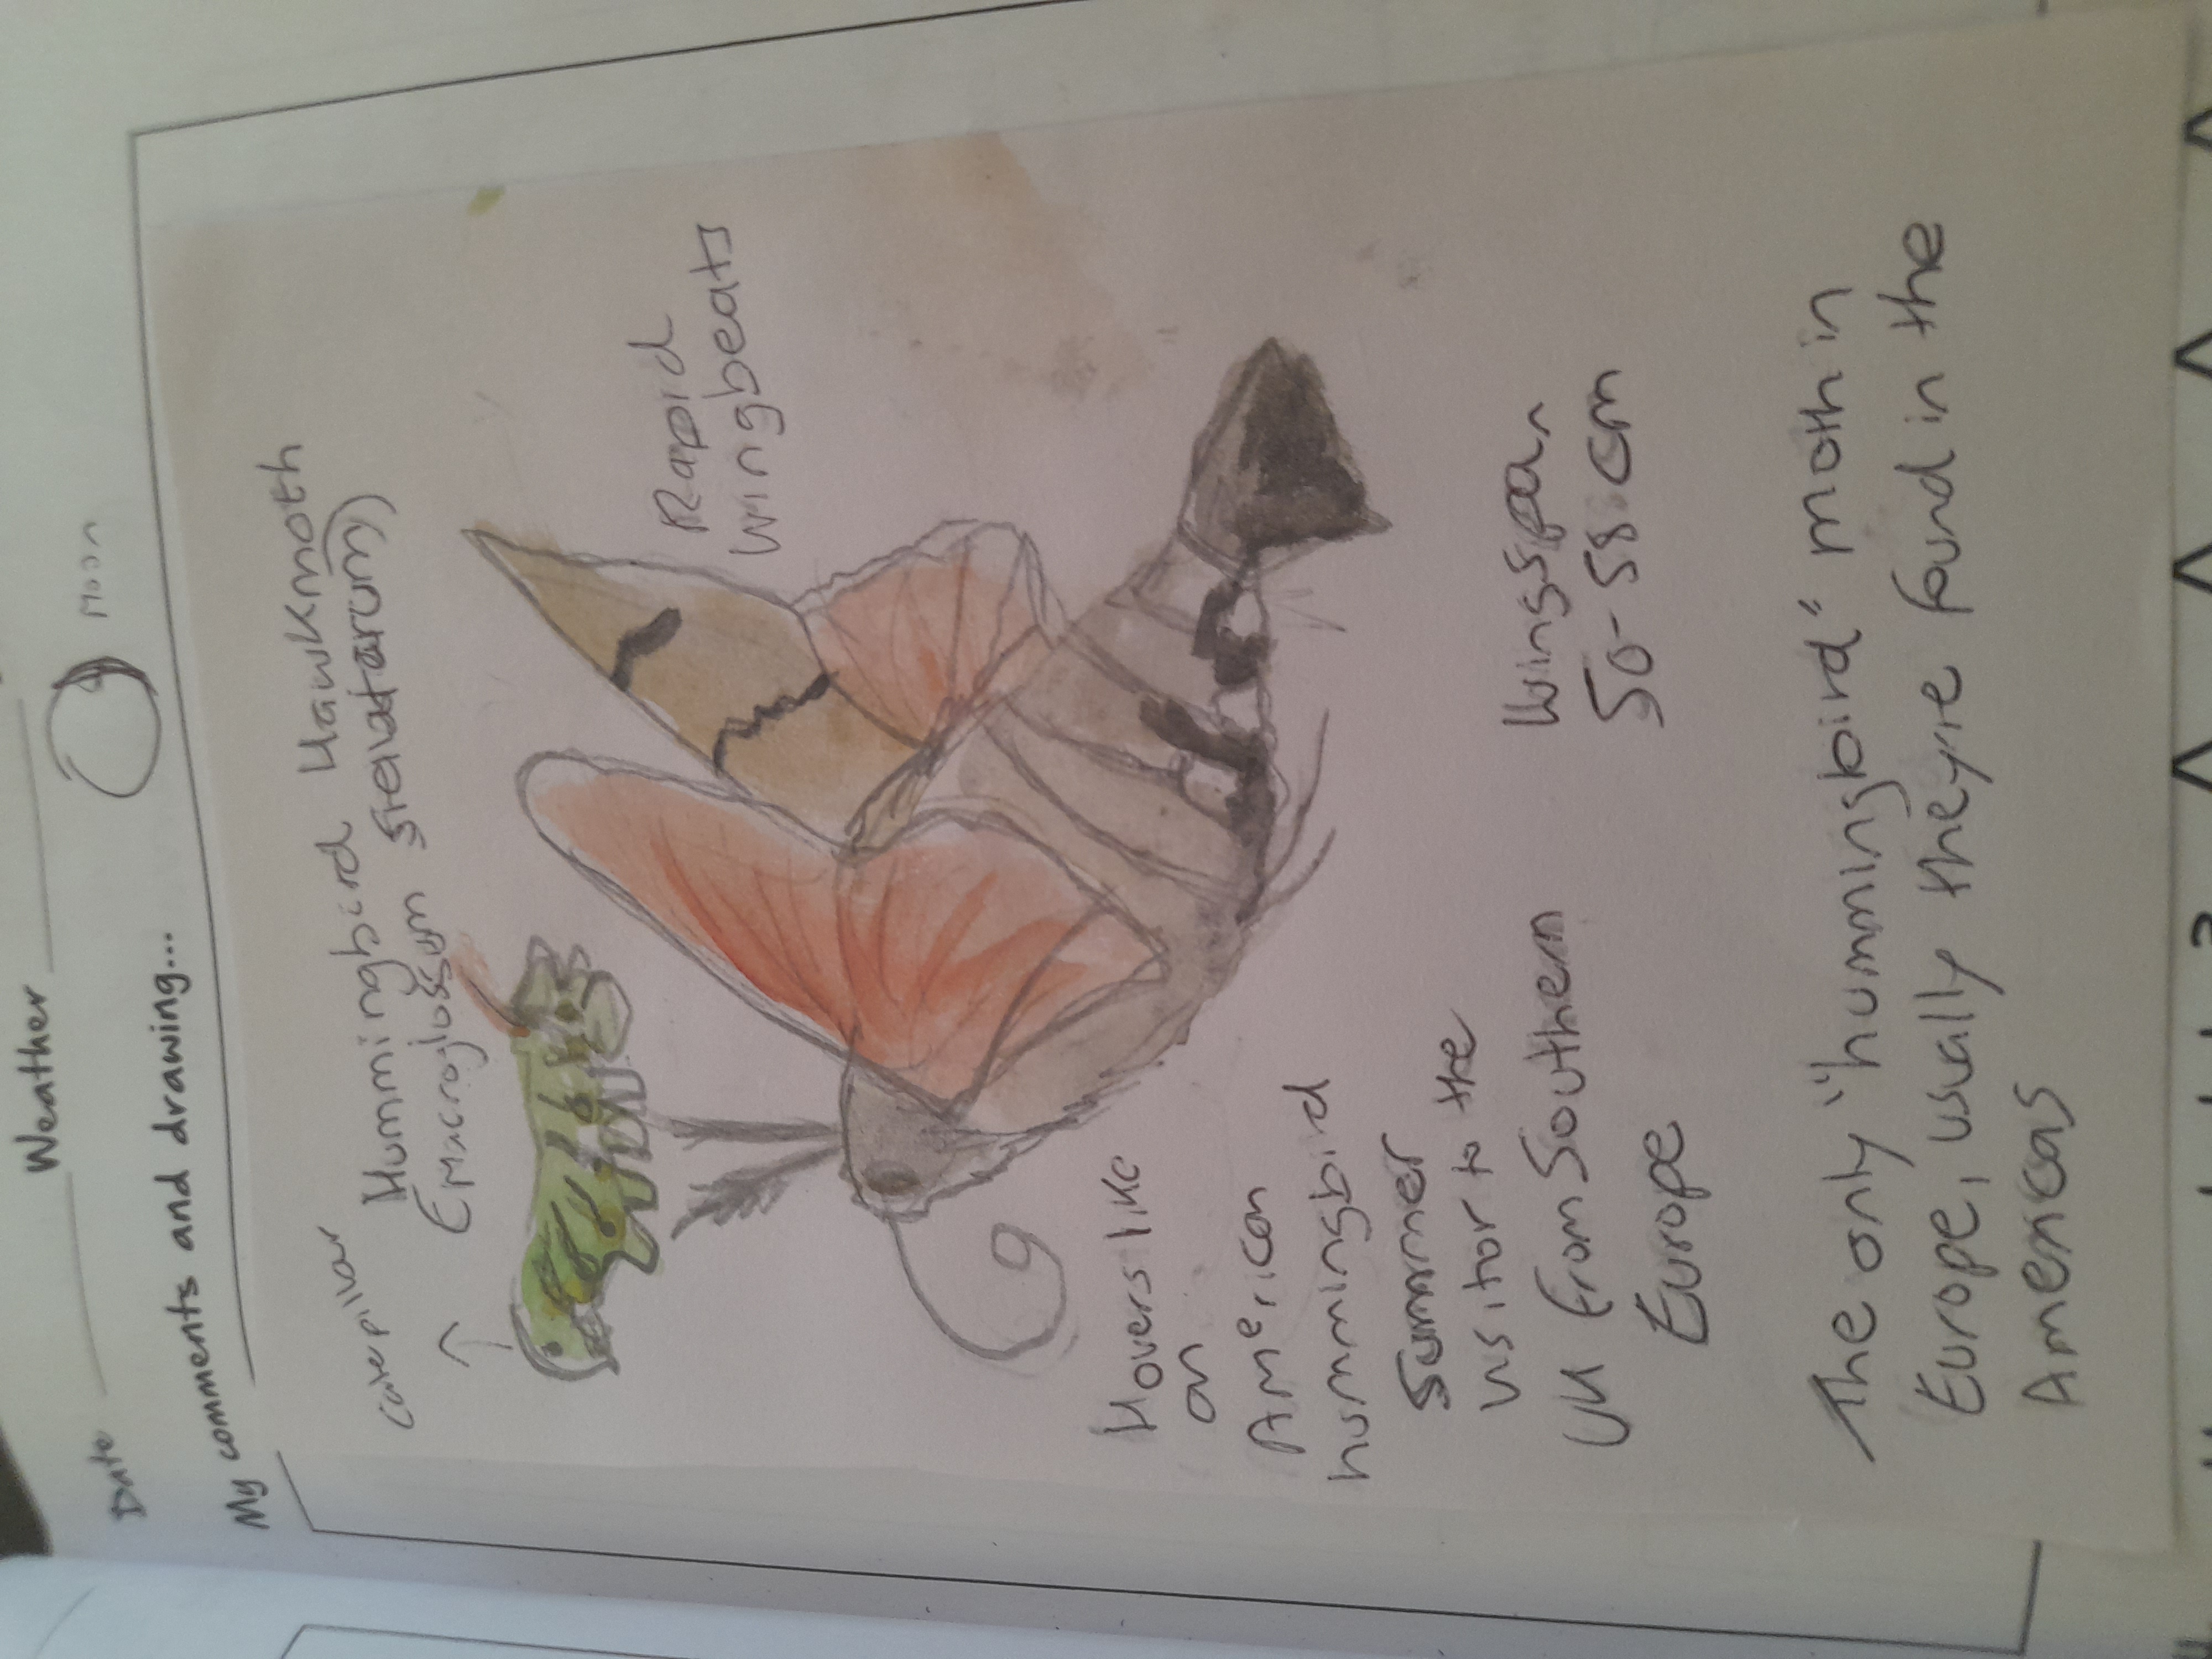 Date
Weather
Moon
My comments and drawing...
caterpillar
Hummingbird Hawkmoth
(Macroglossum stellatarum)
Rapid
wingbeats
Hovers like
an
American
hummingbird
Summer
visitor to the
UK from Southern
Europe
Wingspan
50-58 cm
The only "hummingbird" moth in
Europe, usually theyre found in the
Americas